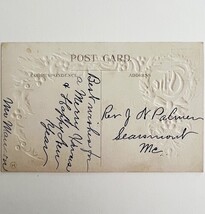 POST CARD
CORRESPONDENCE
ADDRESS
Best wishes for
a Merry Xmas
& Happy New
Year
Rev. J N Palmer
Searsmont
Me.